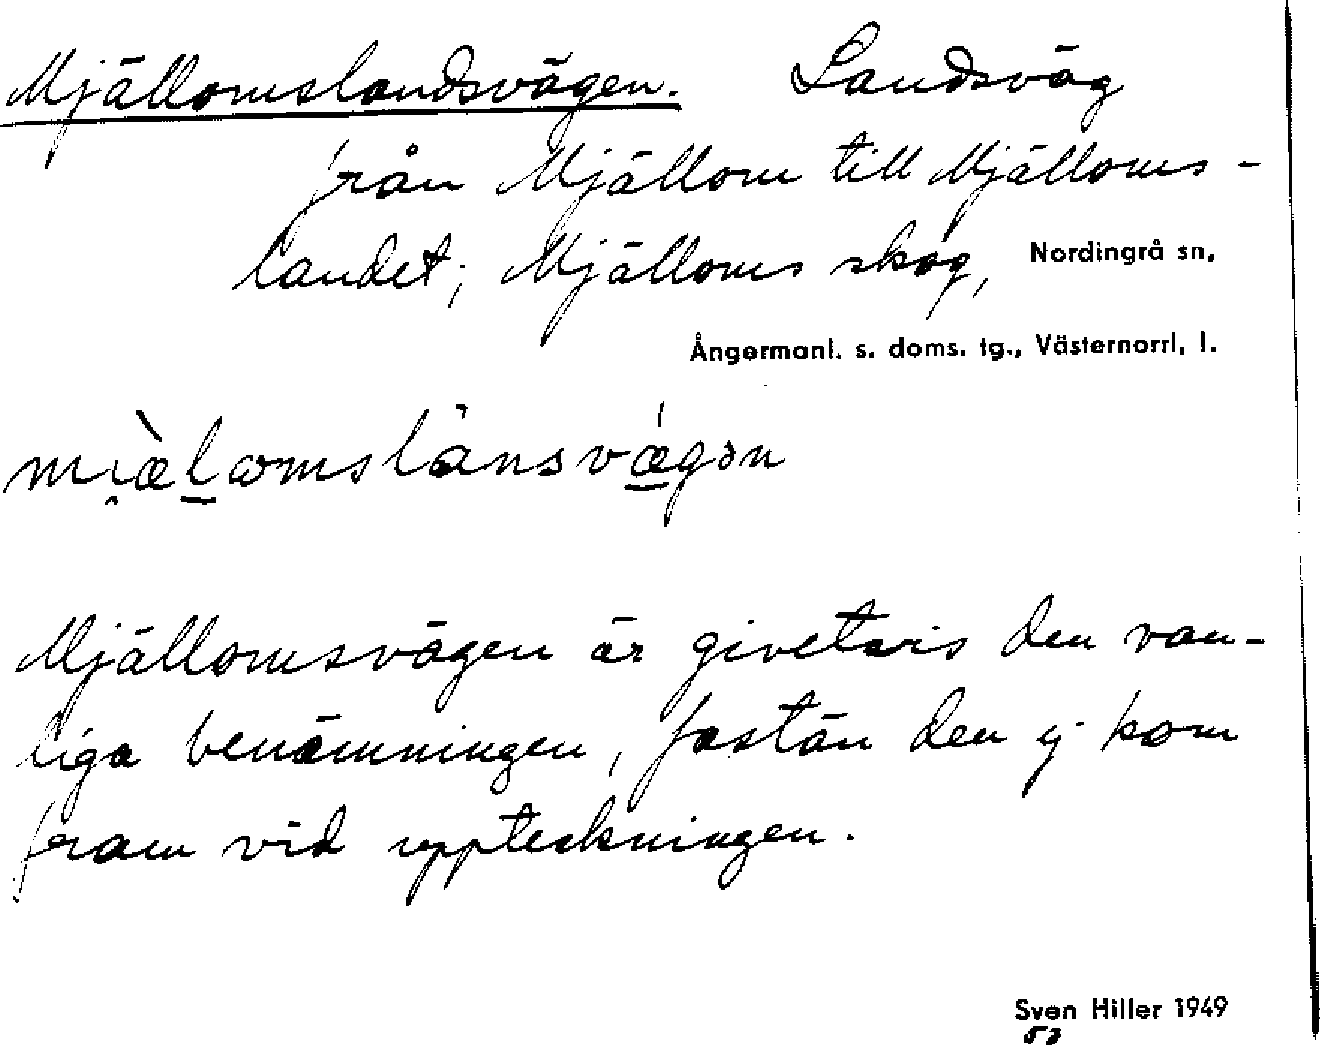 Mjällomslandsvägen. Landsväg
från Mjällom till Mjälloms-
landet; Mjälloms skog, Nordingrå sn,
Ångermanl. s. doms. tg., Västernorrl. l.
Mjällomsvägen är givetvis den van-
liga benämningen, fastän den ej kom
fram vid uppteckningen.
Sven Hiller 1949
53